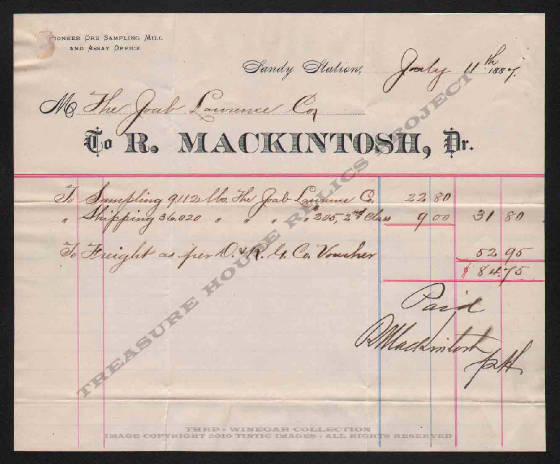 PIONEER ORE SAMPLING MILL
AND ASSAY OFFICE
Sandy Station, July 11th 1887.
M The Joab Lawrence Co
To R. MACKINTOSH, Dr.
To Sampling 9112 lbs The Joab Lawrence Co 22 80
" Shipping 36020 " " " 205, 2nd Class 9 00 31 80
To Freight as per D. & R. G. Co. Voucher 52 95
$ 84.75
Paid
R Mackintosh
TREASURE HOUSE RELICS PROJECT
THRP - WINEGAR COLLECTION
IMAGE COPYRIGHT 2010 TINTIC IMAGES - ALL RIGHTS RESERVED